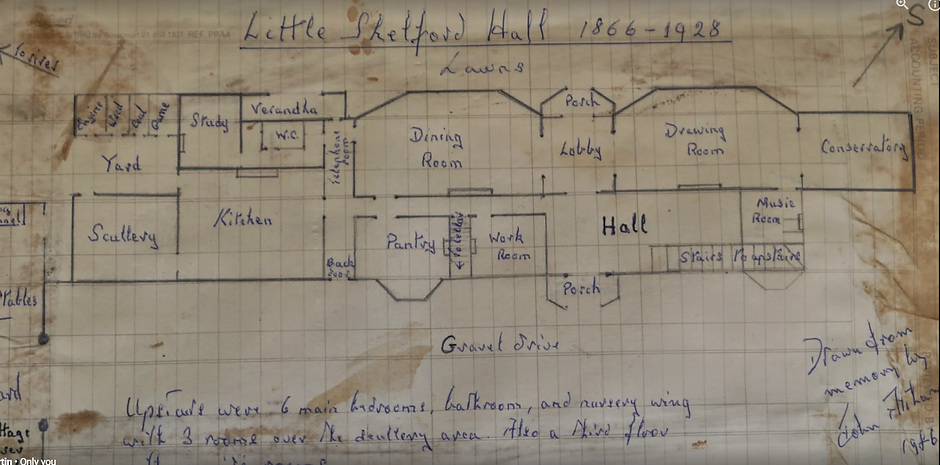 Little Shelford Hall 1866-1928
S
Lawns
Wood
Coal
Game
Study
Verandha
W.C.
Telephone
room
Dining
Room
Porch
Lobby
Drawing
Room
Conservatory
Yard
Scullery
Kitchen
Back
Pantry
Work
Room
Hall
Music
Room
Stairs
Porch
Gravel drive
Drawn from
memory by
John
1986
Upstairs were 6 main bedrooms, bathroom, and nursery wing
with 3 rooms over the scullery area. Also a third floor
Only you